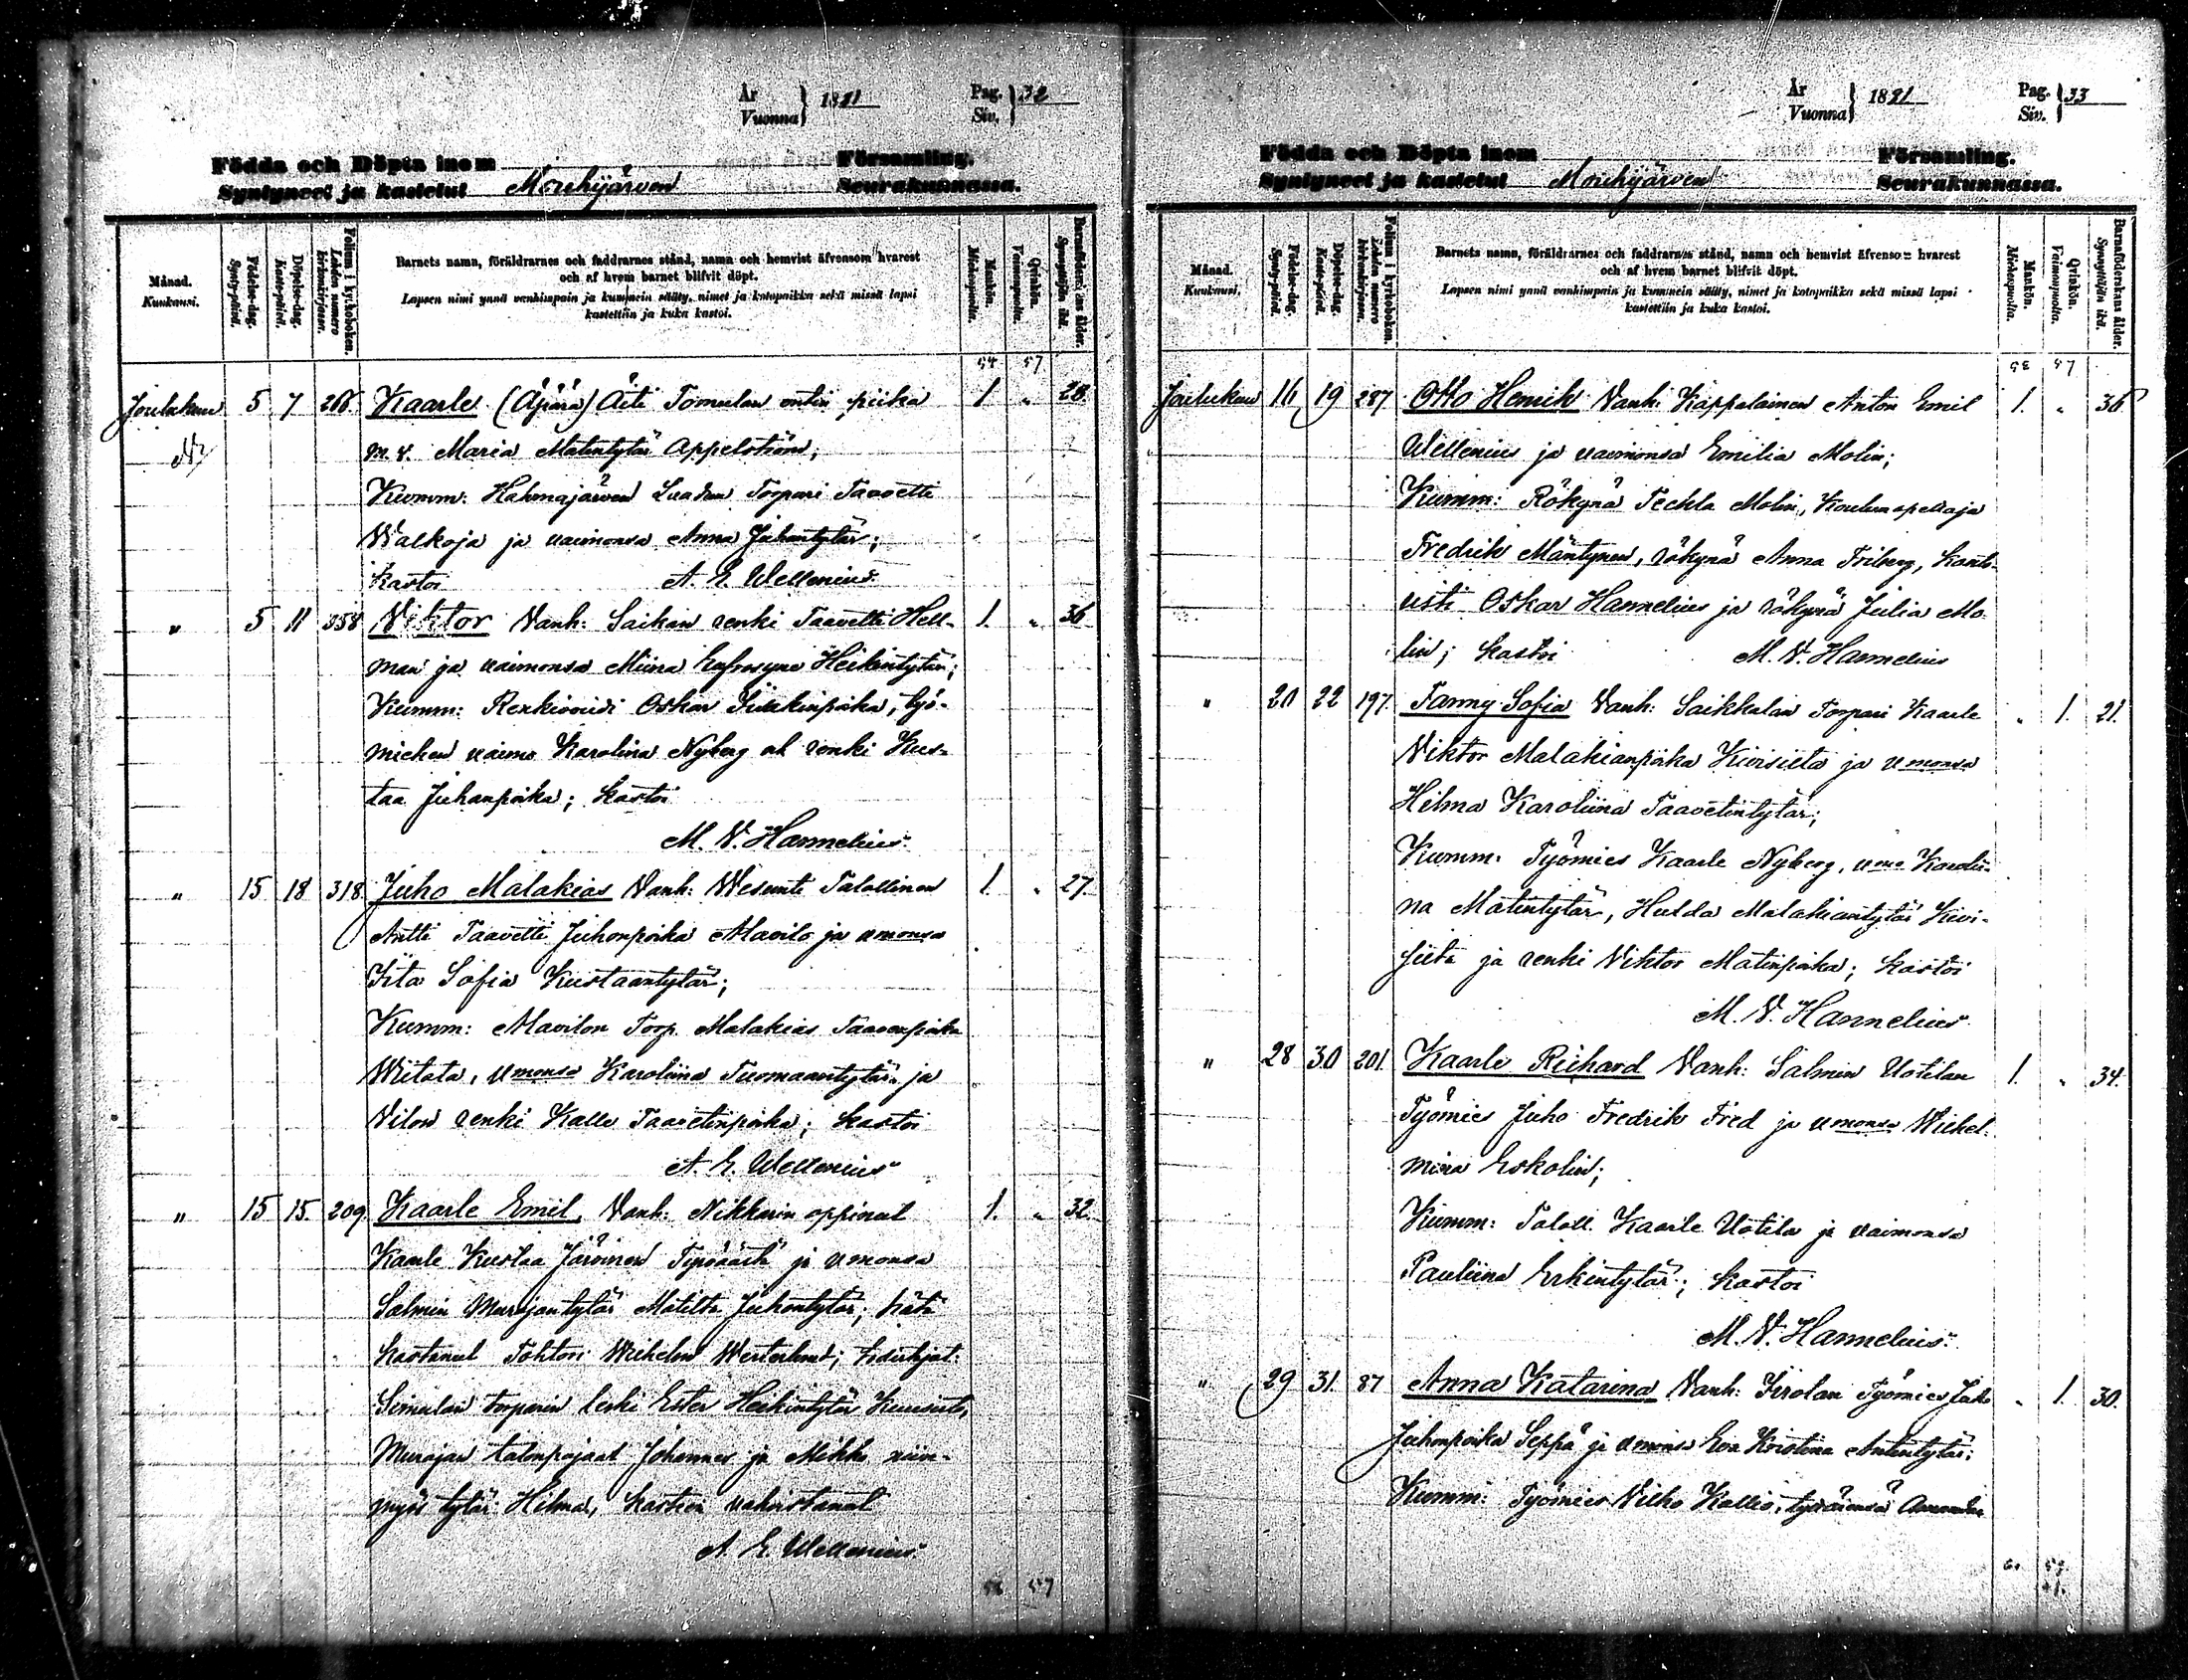 År
Vuonna } 1891 Pag.
Siv. } 32
Födda och Döpta inom Församling.
Syntyneet ja kastetut Mouhijärven Seurakunnassa.
Månad.
Kuukausi.
Födelse-dag.
Syntypäivä.
Döpelse-dag.
Kastepäivä.
Folium i kyrkoboken.
Lehden numero kirkonkirjassa.
Barnets namn, föräldrarnes och faddrarnes stånd, namn och hemvist äfvensom hvarest
och af hvem barnet blifvit döpt.
Lapsen nimi ynnä vanhimpain ja kummein sääty, nimet ja kotopaikka sekä missä lapsi
kastettiin ja kuka kastoi.
Mankön.
Miehenpuolia.
Qvinkön.
Vaimonpuolia.
Barnaföderskans ålder.
Synnyttäjän ikä.
54 57
Joulukuu 5 7 266. Kaarle (Äpärä) Äiti Tomulan entin. piika 1 " 28.
m. v. Maria Matintytär Appelström;
Kumm: Hahmajärven Torpari Taavetti
Walkoja ja vaimonsa Anna Juhantytär;
Kastoi A. E. Wellenius.
" 5 11 358 Viktor Vanh: Saikan renki Taavetti Hell- 1. " 36
man ja vaimonsa Miina Eufrosyne Heikintytär;
Kumm: Renkivouti Oskar Iisakinpoika, työ-
miehen vaimo Karolina Nyberg ok renki Kus-
taa Juhanpoika; kastoi
M. V. Hannelius.
" 15 18 318. Juho Malakias Vanh: Wesunti Talollinen 1. " 27.
Antti Taavetti Juhonpoika Mavila ja vmonsa
Iita Sofia Kustaantytär;
Kumm: Mavilan Torp. Malakias Taavenpoika
Wiitata, vmonsa Karoliina Tuomaantytär ja
Vilon renki Kalle Taavetinpoika; kastoi
A. E. Wellenius
" 15 15. 209. Kaarle Emil, Vanh: Nikkarin oppinut 1. " 32.
Kaarle Kustaa Järvinen ja vmonsa
Salmin Murajantytär Matilta Juhontytär; hätä
kastanut Tohtori Wilhelm Westerlund;
Simulan torparin leski Ester Heikintytär
Murajan talonpojaat Johannes ja Mikko
myös tytär Hilma, kasteen vahvistanut
A. E. Wellenius.
57
År
Vuonna } 1891 Pag.
Siv. } 33
Födda och Döpta inom Församling.
Syntyneet ja kastetut Mouhijärven Seurakunnassa.
Månad.
Kuukausi.
Födelse-dag.
Syntypäivä.
Döpelse-dag.
Kastepäivä.
Folium i kyrkoboken.
Lehden numero kirkonkirjassa.
Barnets namn, föräldrarnes och faddrarnes stånd, namn och hemvist äfvensom hvarest
och af hvem barnet blifvit döpt.
Lapsen nimi ynnä vanhimpain ja kummein sääty, nimet ja kotopaikka sekä missä lapsi
kastettiin ja kuka kastoi.
Mankön.
Miehenpuolia.
Qvinkön.
Vaimonpuolia.
Barnaföderskans ålder.
Synnyttäjän ikä.
57
Joulukuu 16 19 287 Otto Henrik Vanh: Kappalainen Anton Emil 1. " 36
Wellenius ja vaimonsa Emilia Molin;
Kumm: Rökynä Techla Molin, Koulunopettaja
Fredrik Mäntynen, rökynä Anna Friberg, Kant-
Oskar Hannelius ja rökynä Julia Mo-
lin; kastoi M. V. Hannelius
" 20 22 197. Fanny Sofia Vanh: Saikkalan Torpari Kaarle " 1. 21.
Viktor Malakianpoika Kivisiita ja vmonsa
Hilma Karoliina Taavetintytär;
Kumm: Työmies Kaarle Nyberg, vmo Karolii-
na Matintytär, Hulda Malakiantytär Kivi-
siita ja renki Viktor Matinpoika; kastoi
M. V. Hannelius.
" 28 30 201. Kaarle Richard Vanh: Salmin Uotilan 1. " 34.
Työmies Juho Fredrik Fred ja vmonsa Wilhel-
mina Eskolin;
Kumm: Taloll. Kaarle Uotila ja vaimonsa
Pauliina Erkintytär; kastoi
M. V. Hannelius.
" 29 31. 87 Anna Katarina Vanh: Iirolan Työmies Juho " 1. 30.
Juhonpoika Seppä ja vmonsa Eva Kristiina Antintytär;
Kumm: Työmies Vilho Kallio, Amanda